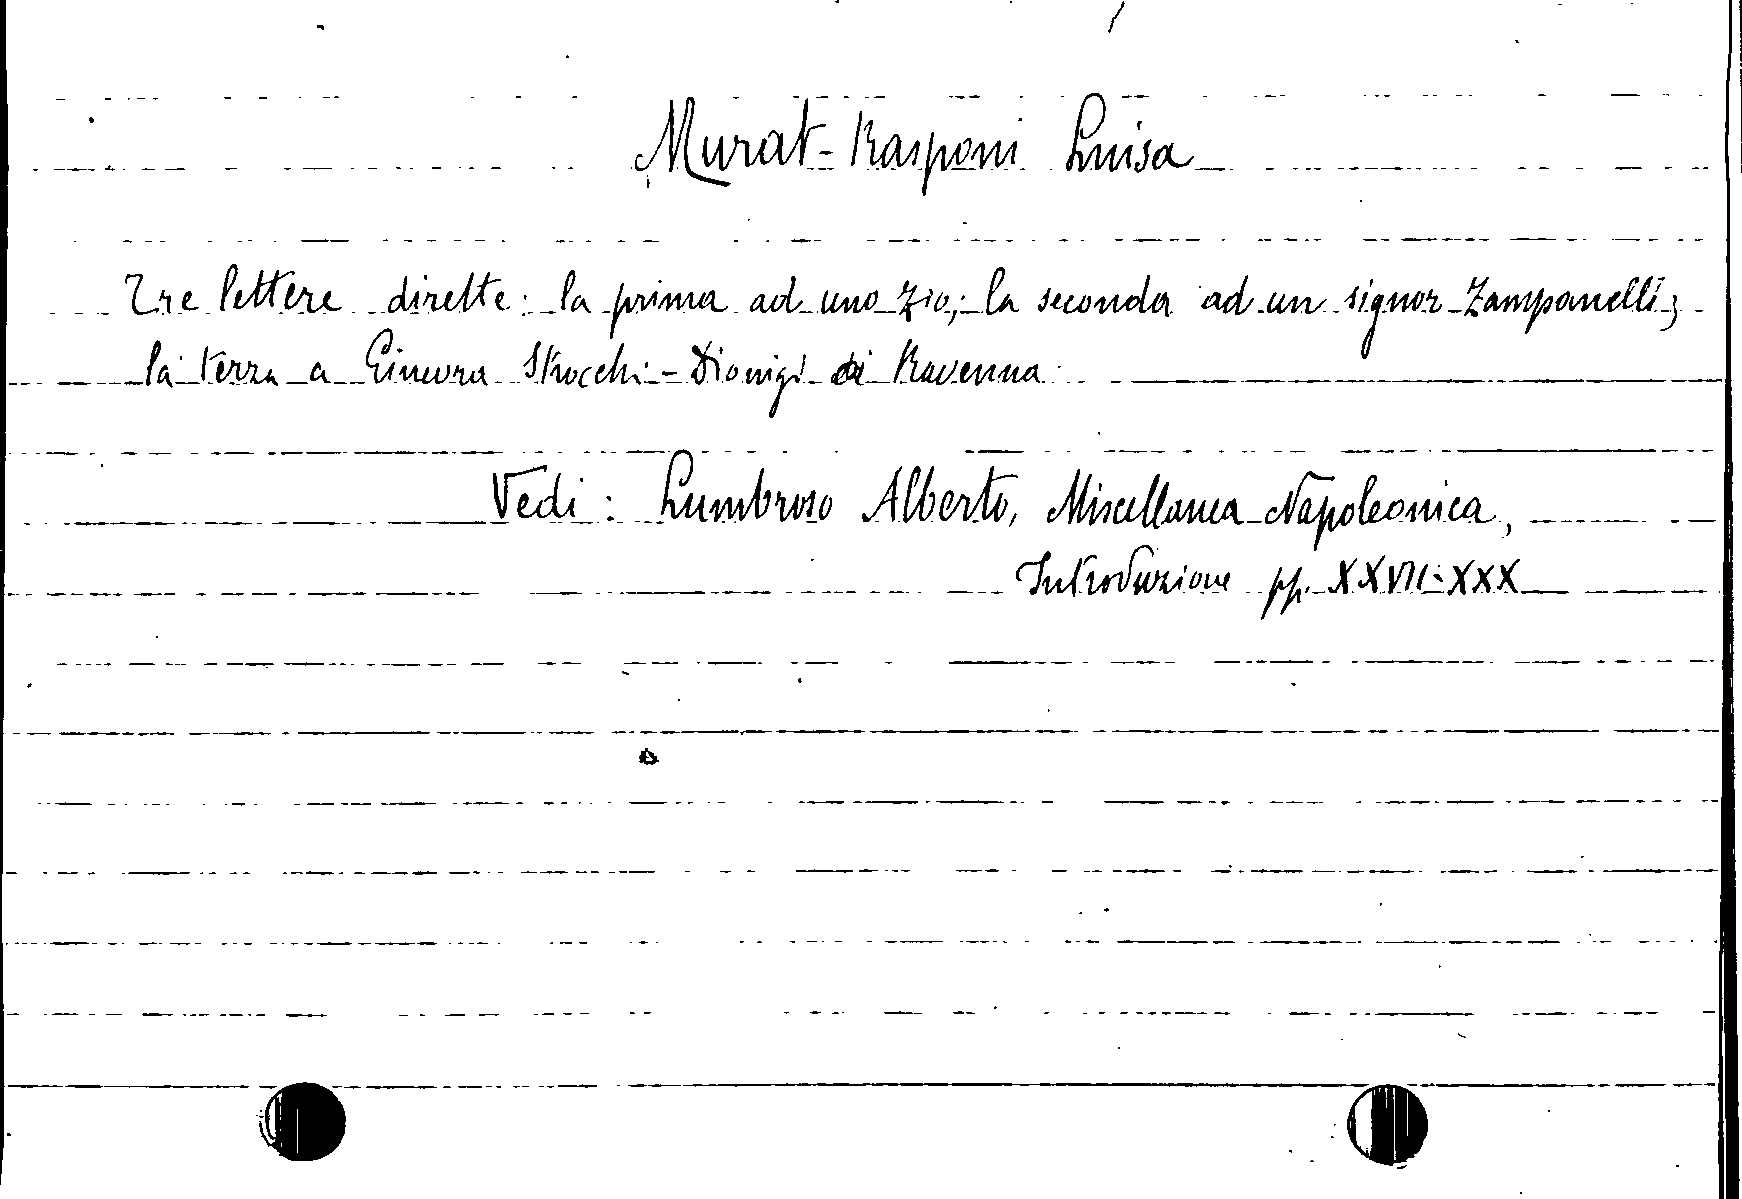 Murat-Rasponi Luisa
Tre lettere dirette: la prima ad uno zio; la seconda ad un signor Zampanelli;
la terza a Ginevra Strocchi-Dionigi di Ravenna
Vedi: Lumbroso Alberto, Miscellanea Napoleonica,
Introduzione pp. XXVII-XXX